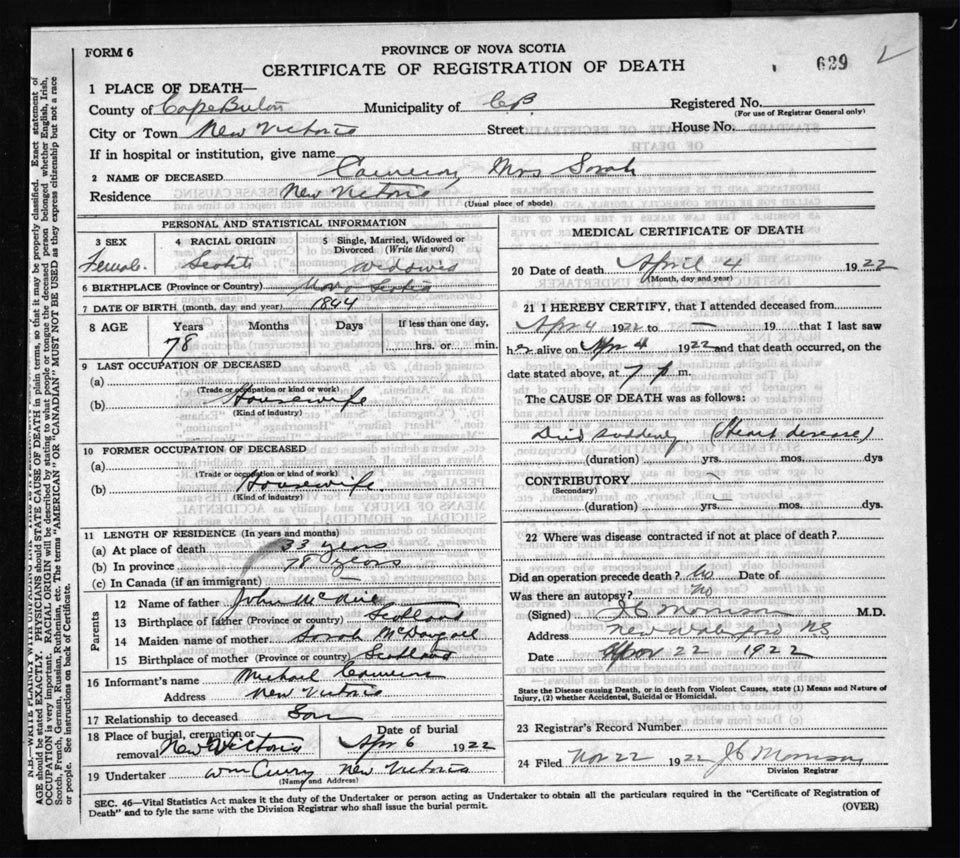 FORM 6
PROVINCE OF NOVA SCOTIA
CERTIFICATE OF REGISTRATION OF DEATH
629
1 PLACE OF DEATH—
County of Cape Breton Municipality of C B Registered No.
(For use of Registrar General only)
City or Town New Victoria Street House No.
If in hospital or institution, give name
2 NAME OF DECEASED Cameron Mrs Sarah
Residence New Victoria
(Usual place of abode)
PERSONAL AND STATISTICAL INFORMATION
3 SEX 4 RACIAL ORIGIN 5 Single, Married, Widowed or Divorced (Write the word)
Female. Scotch Widowed
6 BIRTHPLACE (Province or Country) Nova Scotia
7 DATE OF BIRTH (month, day and year) 1844
8 AGE Years Months Days If less than one day,
78 hrs. or min.
9 LAST OCCUPATION OF DECEASED
(a)
(Trade or occupation or kind or work)
(b) Housewife
(Kind of industry)
10 FORMER OCCUPATION OF DECEASED
(a)
(Trade or occupation or kind or work)
(b) Housewife
(Kind of industry)
11 LENGTH OF RESIDENCE (In years and months)
(a) At place of death years
(b) In province 78 years
(c) In Canada (if an immigrant) —
Parents
12 Name of father John
13 Birthplace of father (Province or country) Scotland
14 Maiden name of mother Sarah McDougall
15 Birthplace of mother (Province or country) Scotland
16 Informant's name Michael Cameron
Address New Victoria
17 Relationship to deceased Son
18 Place of burial, cremation or removal New Victoria Date of burial Apr 6 1922
19 Undertaker Wm Curry New Victoria
(Name and Address)
MEDICAL CERTIFICATE OF DEATH
20 Date of death April 4 1922
(Month, day and year)
21 I HEREBY CERTIFY, that I attended deceased from
Apr 4 1922 to — 19 that I last saw
her alive on Apr 4 1922 and that death occurred, on the
date stated above, at 7 p m.
The CAUSE OF DEATH was as follows:
Died suddenly (Heart disease)
(duration) yrs. mos. dys
CONTRIBUTORY —
(Secondary)
(duration) yrs. mos. dys.
22 Where was disease contracted if not at place of death?
Did an operation precede death? No Date of
Was there an autopsy? No
(Signed) J C Morrison M.D.
Address New Waterford NS
Date 22 1922
State the Disease causing Death, or in death from Violent Causes, state (1) Means and Nature of
Injury, (2) whether Accidental, Suicidal or Homicidal.
23 Registrar's Record Number
24 Filed Nov 22 1922 J C Morrison
Division Registrar
SEC. 46—Vital Statistics Act makes it the duty of the Undertaker or person acting as Undertaker to obtain all the particulars required in the "Certificate of Registration of
Death" and to fyle the same with the Division Registrar who shall issue the burial permit.
(OVER)
AGE should be stated EXACTLY. PHYSICIANS should STATE CAUSE OF DEATH in plain terms, so that it may be properly classified. Exact statement of
OCCUPATION is very important. RACIAL ORIGIN will be described by stating to what people or tongue the deceased person belonged whether English, Irish,
Scotch, French, German, Russian, Ruthenian, etc. The terms "AMERICAN" OR "CANADIAN" MUST NOT BE USED as they express citizenship but not a race
or people. See instructions on back of Certificate.